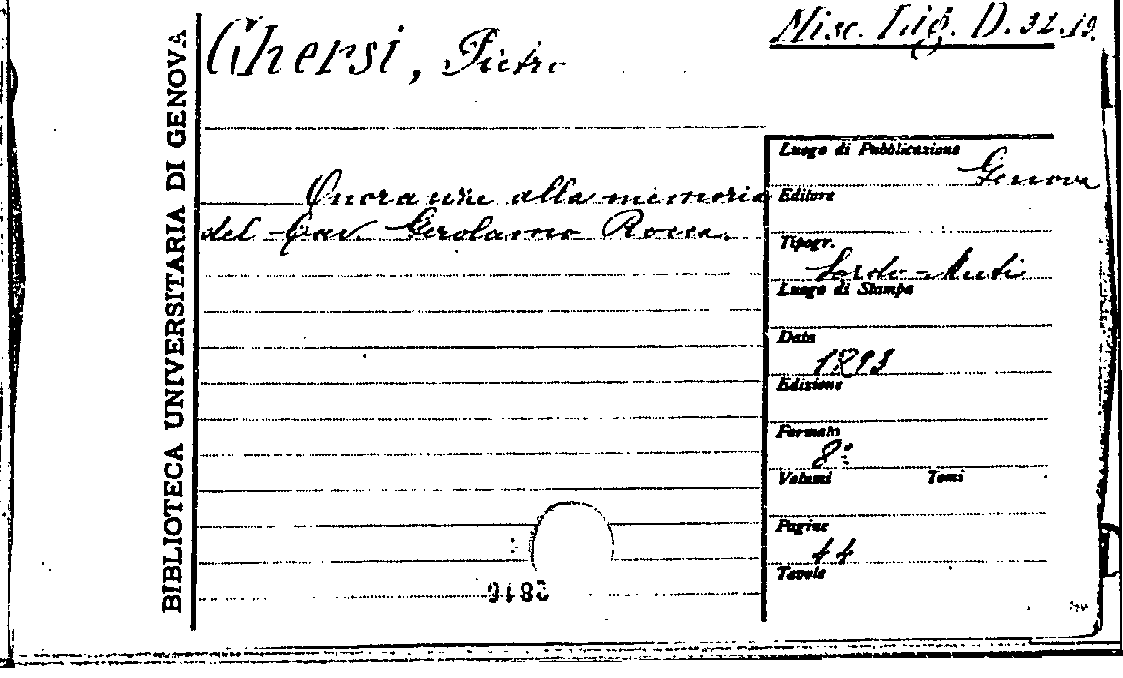 BIBLIOTECA UNIVERSITARIA DI GENOVA
Ghersi, Pietro
Misc. Lig. D. 32.19.
Onoranze alla memoria
del Cav. Gerolamo Rocca.
Luogo di Pubblicazione
Genova
Editore
Tipogr.
Sordo-Muti
Luogo di Stampa
Data
1893
Edizione
Formato
8º
Volumi Tomi
Pagine
44
Tavole